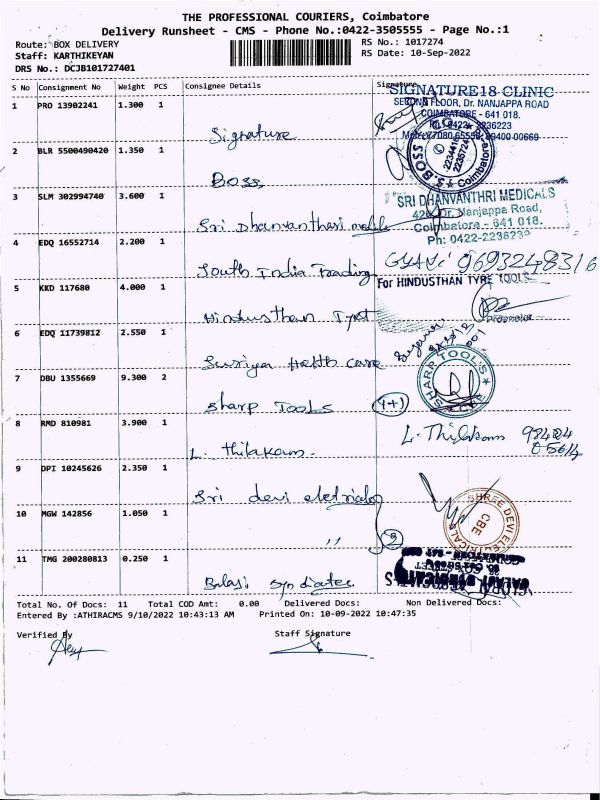 THE PROFESSIONAL COURIERS, Coimbatore
Delivery Runsheet - CMS - Phone No.:0422-3505555 - Page No.:1
Route: BOX DELIVERY
Staff: KARTHIKEYAN
DRS No.: DCJB101727401
RS No.: 1017274
RS Date: 10-Sep-2022
S No Consignment No Weight PCS Consignee Details Signature
1 PRO 13902241 1.300 1
Signature
SIGNATURE18 CLINIC
SECOND FLOOR, Dr. NANJAPPA ROAD
COIMBATORE - 641 018.
2 BLR 5500490420 1.350 1
Boss
BOSS
Coimbatore
3 SLM 302994740 3.600 1
Sri Dhanvanthari
SRI DHANVANTHRI MEDICALS
Dr. Nanjappa Road,
Coimbatore - 641 018.
Ph: 0422-2238239
4 EDQ 16552714 2.200 1
South India Trading
9693248316
5 KKD 117680 4.000 1
Hindusthan Tyre
For HINDUSTHAN TYRE TOOLS
Proprietor
6 EDQ 11739812 2.550 1
Suriya Health Care
7 DBU 1355669 9.300 2
Sharp Tools
(1+1)
SHARP TOOLS
CBE
8 RMD 810981 3.900 1
L. Thilakam.
L. Thilakam
9 DPI 10245626 2.350 1
Sri devi
SHREE DEVI ELECTRICALS
CBE
10 MGW 142856 1.050 1
"
2
11 TMG 200280813 0.250 1
Balaji Syndicate
Total No. Of Docs: 11 Total COD Amt: 0.00 Delivered Docs: Non Delivered Docs:
Entered By :ATHIRACMS 9/10/2022 10:43:13 AM Printed On: 10-09-2022 10:47:35
Verified By Staff Signature